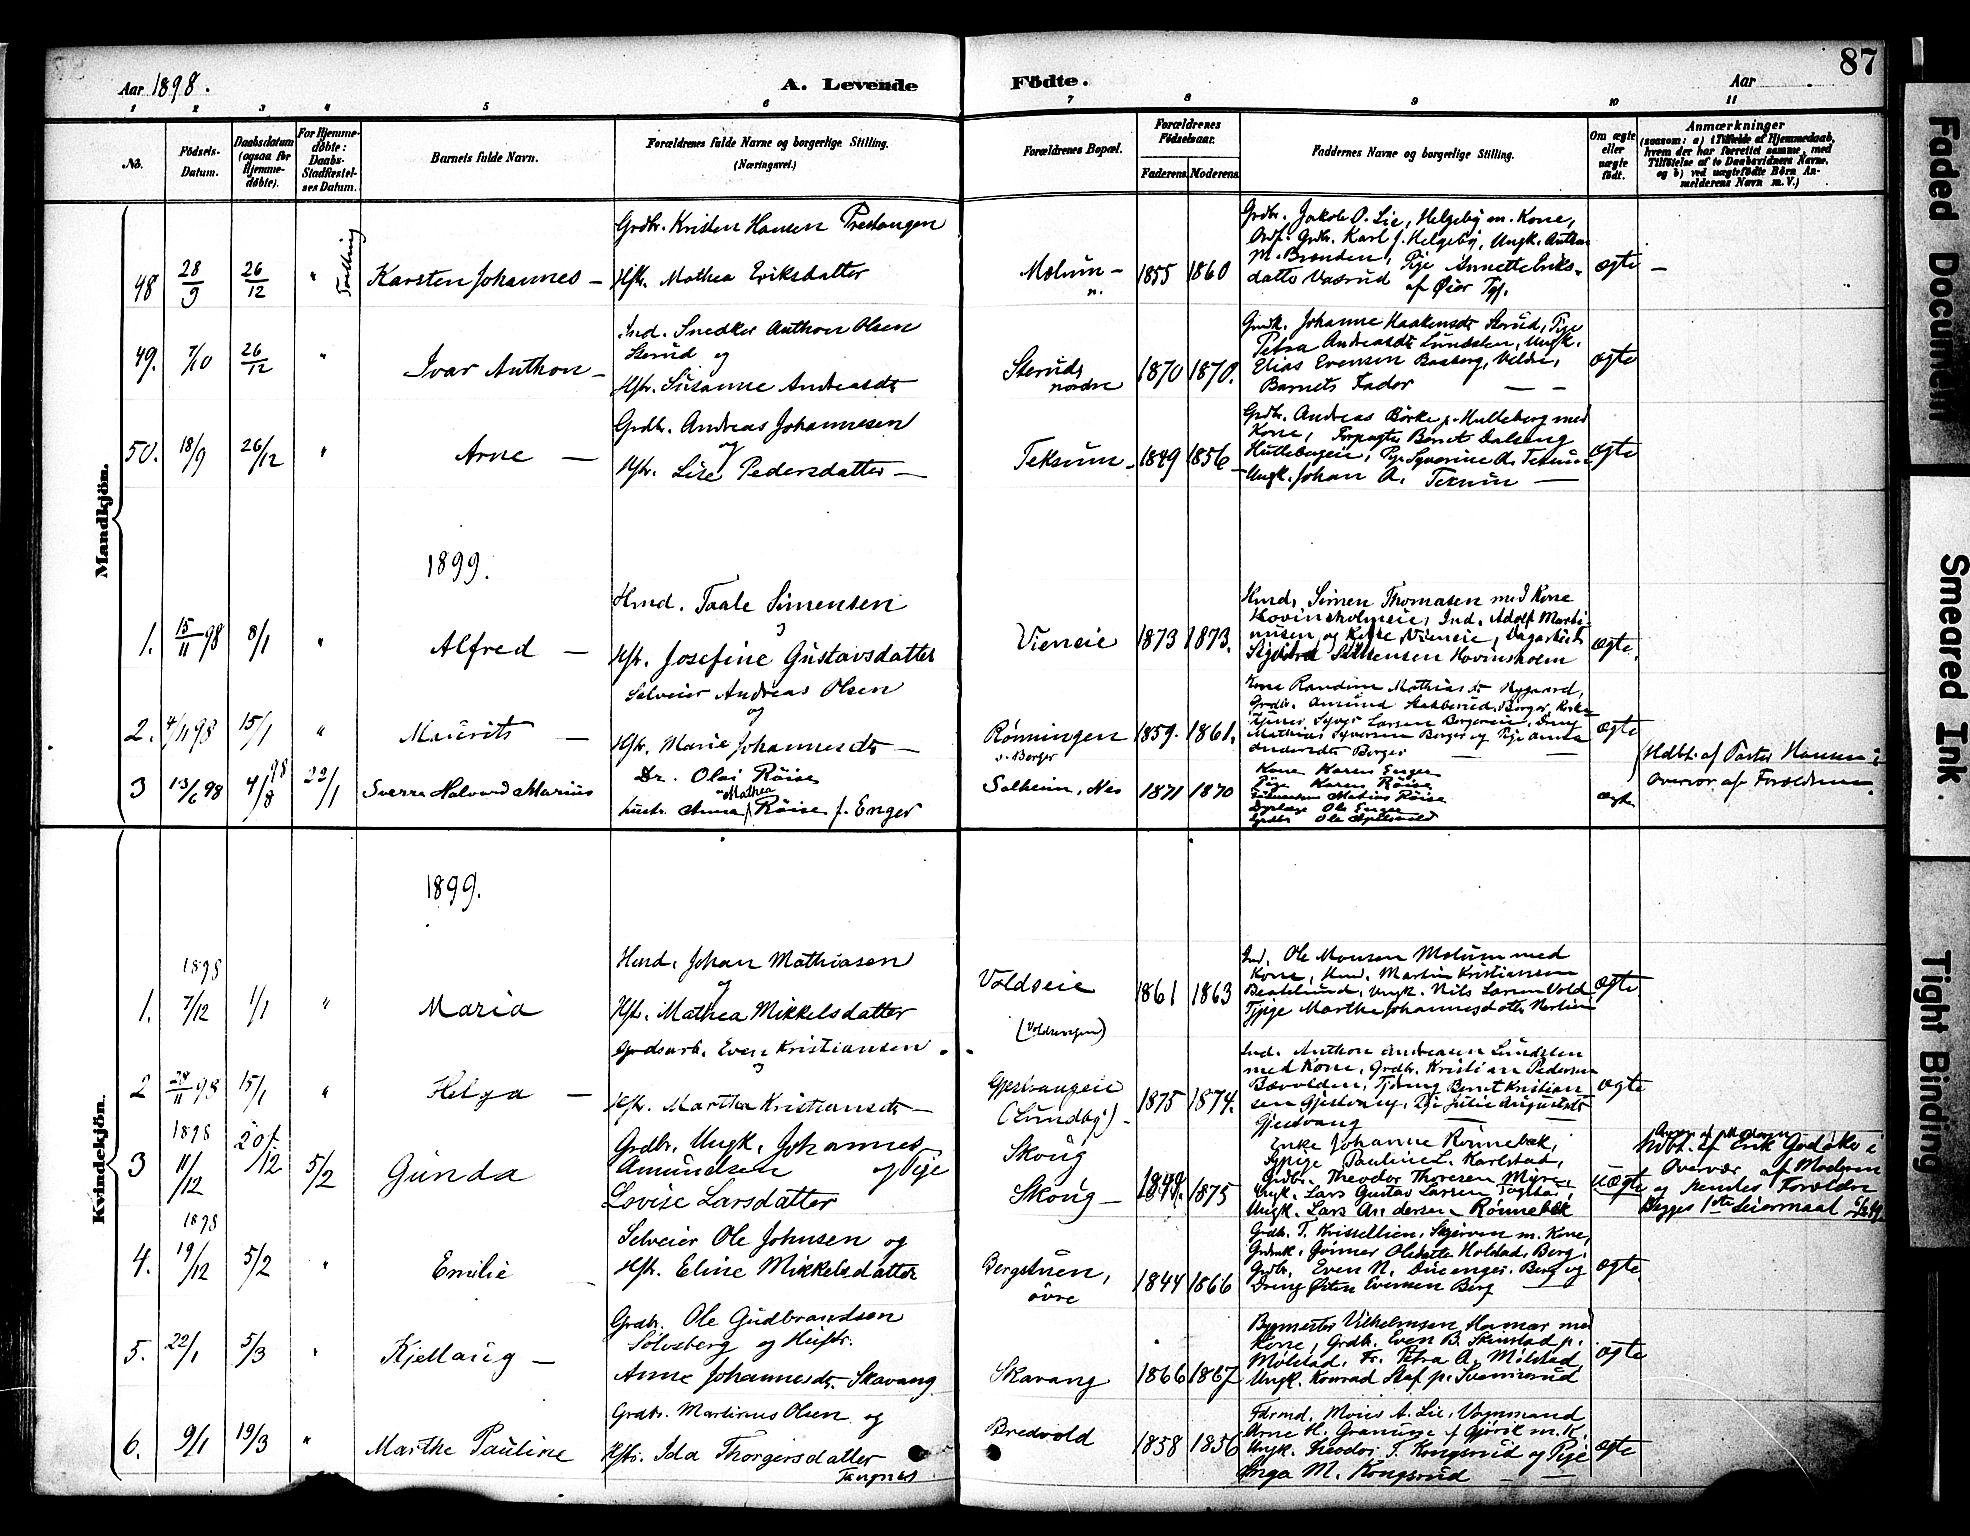 87
Aar 1898.
A. Levende
Födte.
Aar
1 2 3 4 5 6 7 8 9 10 11
No.
Födsels-
Datum.
Daabsdatum
(ogsaa för
Hjemme-
døbte).
For Hjemme-
døbte:
Daabs-
Stadfæstel-
ses Datum.
Barnets fulde Navn.
Forældrenes fulde Navne og borgerlige Stilling.
(Næringsvei.)
Forældrenes Bopæl.
Forældrenes
Födselsaar.
Faderens. Moderens.
Faddernes Navne og borgerlige Stilling.
Om ægte
eller
uægte
födt.
Anmærkninger
(saasom: a) Tilfælde af Hjemmedaab,
hvem der har forrettet samme, med
Tilföielse af to Daabsvidners Navne,
og b) ved uægtefödte Börn An-
melderens Navn m. V.)
Mandkjön.
48 28/9 26/12 " Tvilling
Karsten Johannes –
Grdbr. Kristen Hansen Prestangen
Hstr. Mathea Eriksdatter
Molum –
n.
1855 1860
Grdbr. Jakob O. Lie, Helgeby m. Kone,
Ordf. Grdbr. Karl J. Helgeby, Ungk. Anthon
M. Brænden, Pige Annette Eriks-
datte Vasrud af Øier Tgf.
ægte –
49. 7/10 26/12 "
Ivar Anthon –
Ind. Snedker Anthon Olsen
Sterud og
Hstr. Susanne Andreasdtr
Sterud,
nordre
1870 1870.
Johanne Haakensdtr Sterud, Pige
Petra Andreasdtr Lundslen, Ungk.
Elias Evensen Basberg, Velden,
Barnets Fader – –
ægte
50. 18/9 26/12 "
Arne –
Grdbr. Andreas Johannesen
og
Hstr. Lise Pedersdatter –
Teksum –
1849 1856 –
Grdbr. Andreas Børke p. Hulleberg med
Kone, Forpagter Bernt Dalseng
Ungk. Johan A. Teksum –
ægte
1899.
1. 15/11 98 8/1 "
Alfred –
Hmd. Taale Simensen
og
Hstr. Josefine Gustavsdatter
Vieneie
1873 1873.
Hmd. Simen Thomasen med Kone
Hovinsholmeie, Ind. Adolf Marti-
nusen og Kone Vieneie, Dagarbeider
Simensen Hovinsholm
ægte.
2. 4/11 98 15/1 "
Maurits –
Selveier Andreas Olsen
og
Hstr. Marie Johannesdtr –
Rønningen
v. Berger
1859. 1861.
Kone Randine Mathiasdtr Nygaard,
Grdbr. Amund Stakberud, Berger, Kirke-
tjener Syver Larsen Bergereie, Dreng
Mathias Syversen Berger og Pige Anna
Andersdtr Berger –
ægte
3 13/6 98 4/8 98 22/1
Sverre Halvard Marius
Dr. Olai Røise
hustr. Anna Mathea Røise f. Enger
Solheim, Nes
1871 1870
Kone Karen Enger
Pige Karen Røise
Mathias Røise
Dyrlæge Ole Enger
Grdbr Ole
ægte
Hdbt. af Peter Hansen i
overvær af Forældrene.
Kvindekjön.
1899.
1. 1898 7/12 1/1 "
Maria
Hmd. Johan Mathiasen
og
Hstr. Mathea Mikkelsdatter
Voldseie
(Voldsengen)
1861 1863
Ind. Ole Monsen Molum med
Kone, Hmd. Martin Kristiansen
Beatelund, Ungk. Nils Larsen Vold
Tjpige Marthe Johannesdatter
ægte
2 28/11 98 15/1 "
Helga –
Grdsarb. Even Kristiansen
og
Hstr. Martha Kristiansdtr –
Gjestvangeie
(Lundby) –
1875 1874.
Ind. Anthon Andreasen Lundslen
med Kone, Grdbr. Kristian Pedersen
Bævolden, Tjdreng Bernt Kristian
sen Gjestvang, Pige Julie Augustsdtr
Gjestvang –
ægte
3 1898 11/12 20/12 5/2
Gunda
Grdbr. Ungk. Johannes
Amundsen og Pige
Lovise Larsdatter
Skoug
Skoug –
1849. 1875
Enke Johanne Rønnebæk,
Tjpige Pauline L. Karlstad,
Grdbr. Theodor Thoresen Myre
Ungk. Lars Gustav Larsen
Ungk. Lars Andersen Rønnebæk
uægte
Anm. af Moderen
Hdbt. af Erik Godager i
Overvær af Moderen
og hendes Forældre
Begges 1ste Leiermaal
4. 1898 19/12 5/2 "
Emilie –
Selveier Ole Johnsen og
Hstr. Eline Mikkelsdatter
Bergstuen,
øvre
1844 1866
Grdbr. T. Kristellien, Skjerven m. Kone,
Grdmk. Gunner Olsdatter Holstad, Berg,
Grdbr. Even N. Dueenger, Berg og
Dreng Østen Evensen Berg –
ægte.
5. 22/1 5/3 "
Kjellaug –
Grdbr. Ole Gudbrandsen
Sølvsberg og Hustr.
Anne Johannesdtr. Skavang
Skavang
1866 1867
Bygmester Vilhelmsen Hamar med
Kone, Grdbr. Even B. Skinstad p.
Mølstad, Fr. Petra A. Mølstad,
Ungk. Konrad Staf p.
ægte
6. 9/1 19/3 "
Marthe Pauline
Grdbr. Martinus Olsen og
Hstr. Ida Thorgersdatter
Tangnes
Bredvold
1858 1856
Farmd. Moies A. Lie, Vognmand
Arne H. Granum af Gjøvik m. K.
Ungk. Theodor T. Kongsrud og Pige
Inga M. Kongsrud – –
ægte
Faded Document
Smeared Ink.
Tight Binding